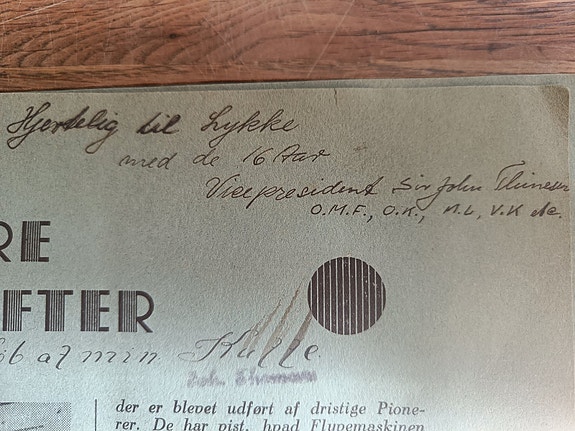 Hjertelig til Lykke
med de 16 Aar
Vicepresident Sir John
O.M.F., O.K., M.L, V.K etc.
RE
FTER
af min Kulle
Joh.
der er blevet udført af dristige Pione-
rer. De har vist, hvad Flyvemaskinen